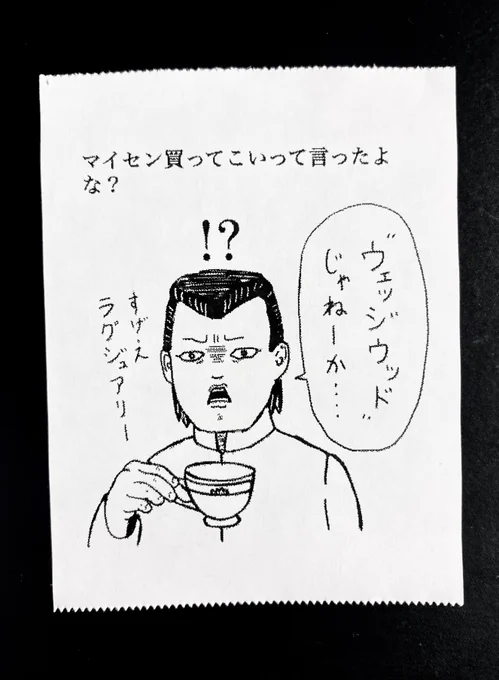 マイセン買ってこいって言ったよ
な?
!?
"ヴェッジウッド"
じゃねーか....
すげえ
ラグジュアリー